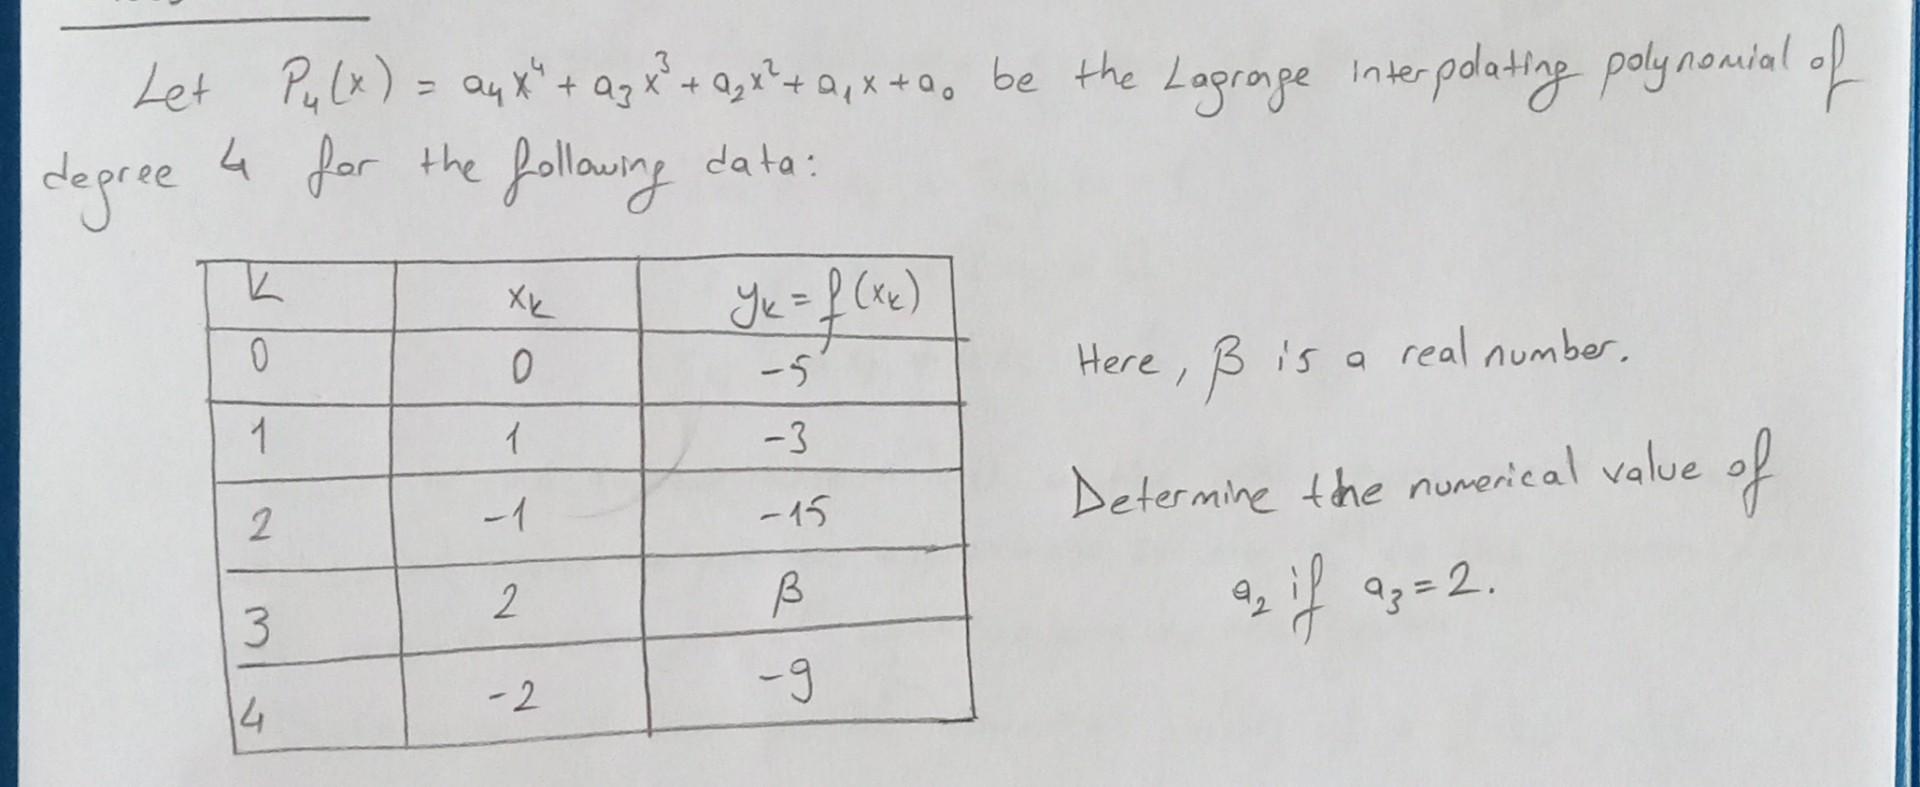 Let P₄(x) = a₄x⁴ + a₃x³ + a₂x² + a₁x + a₀ be the Lagrange interpolating polynomial of
degree 4 for the following data:
k xₖ yₖ = f(xₖ)
0 0 -5
1 1 -3
2 -1 -15
3 2 β
4 -2 -9
Here, β is a real number.
Determine the numerical value of
a₂ if a₃ = 2.